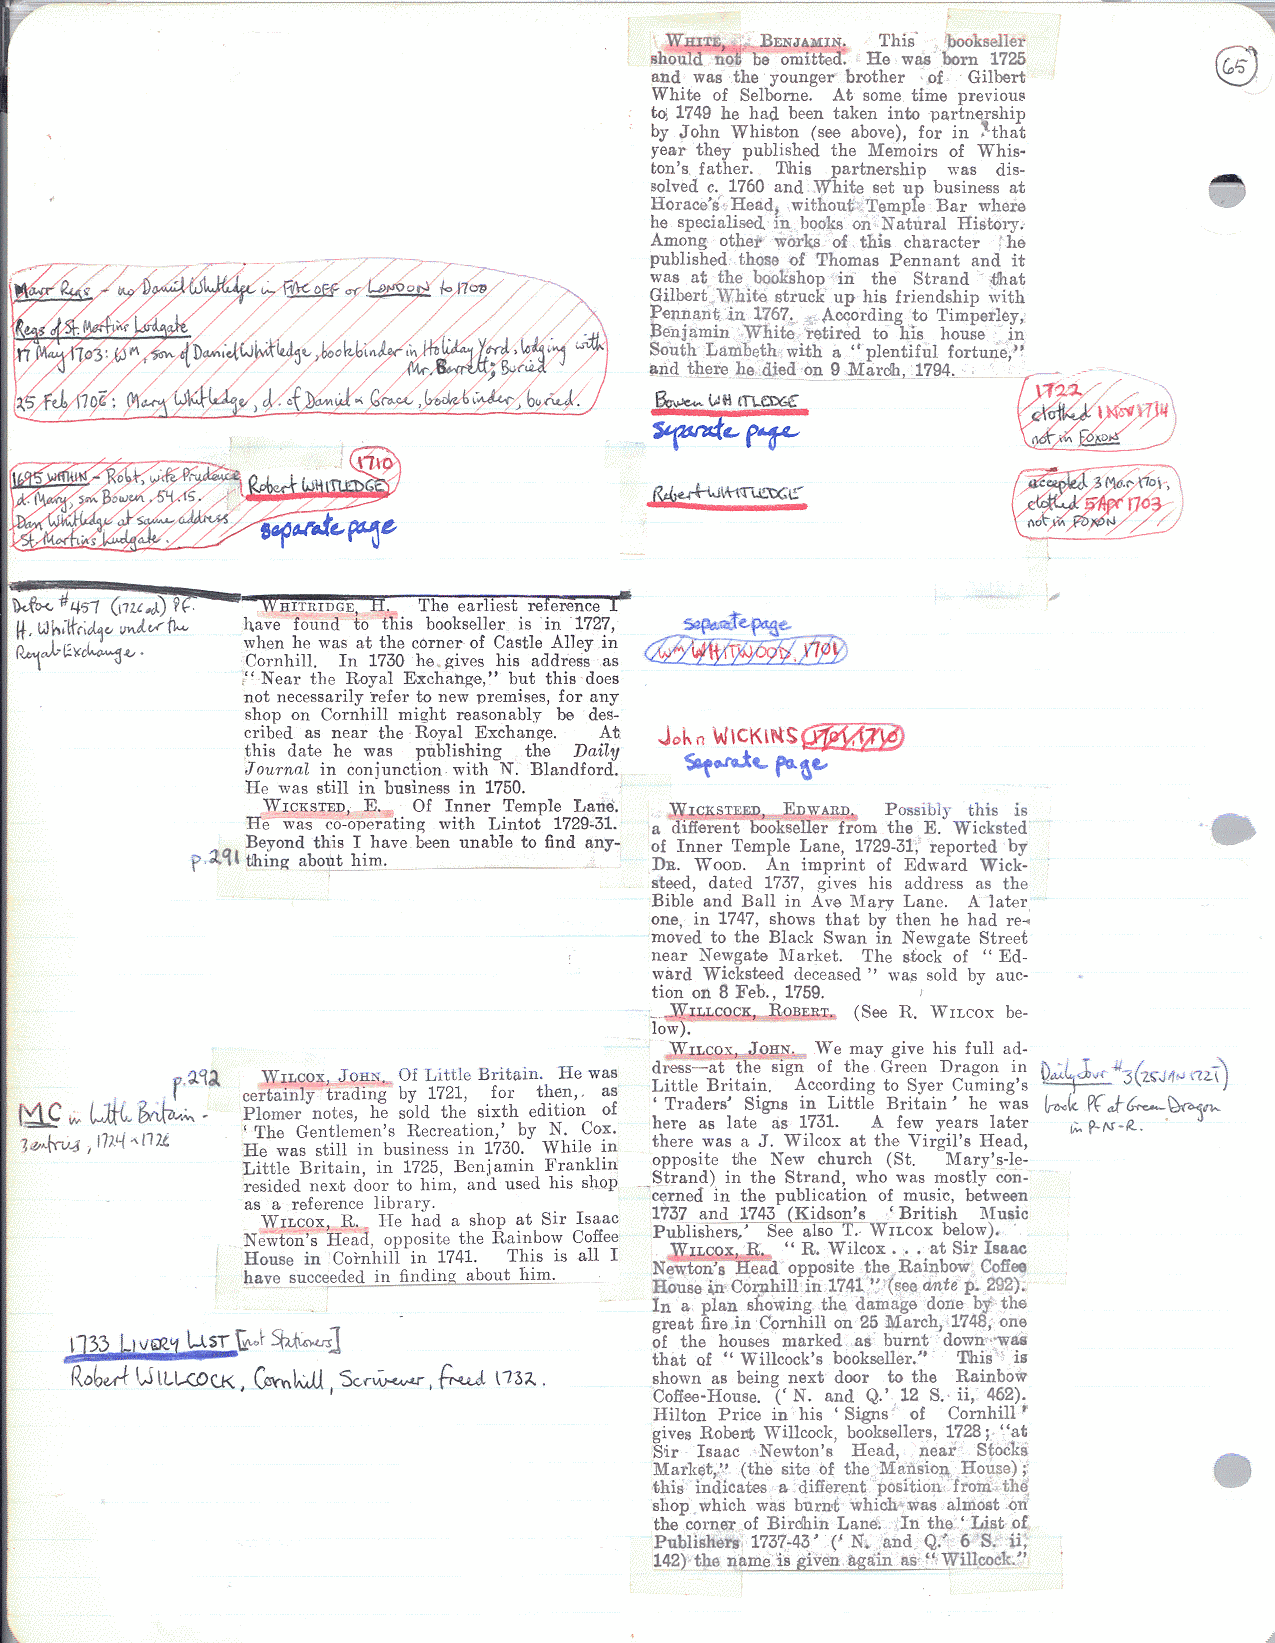 65
WHITE, BENJAMIN. This bookseller
should not be omitted. He was born 1725
and was the younger brother of Gilbert
White of Selborne. At some time previous
to 1749 he had been taken into partnership
by John Whiston (see above), for in that
year they published the Memoirs of Whis-
ton's father. This partnership was dis-
solved c. 1760 and White set up business at
Horace's Head, without Temple Bar where
he specialised in books on Natural History.
Among other works of this character he
published those of Thomas Pennant and it
was at the bookshop in the Strand that
Gilbert White struck up his friendship with
Pennant in 1767. According to Timperley,
Benjamin White retired to his house in
South Lambeth with a "plentiful fortune,"
and there he died on 9 March, 1794.
Marr Regs - no Daniel Whitledge in FAC OFF or LONDON to 1700
Regs of St. Martins Ludgate
17 May 1703: Wm, son of Daniel Whitledge, bookbinder in Holiday Yard, lodging with
Mr. Barrett; Buried
25 Feb 1706: Mary Whitledge, d. of Daniel & Grace, bookbinder, buried.
Bowen WHITLEDGE
separate page
1722
clothed 1 Nov 1714
not in FOXON
1695 WITHIN - Robt, wife Prudence
d. Mary, son Bowen. 54.15.
Dan Whitledge at same address
St. Martins Ludgate.
1710
Robert WHITLEDGE
separate page
Robert WHITLEDGE
accepted 3 Mar 1701,
clothed 5 Apr 1703
not in FOXON
Defoe #457 (1726 ed) PF.
H. Whittridge under the
Royal Exchange.
WHITRIDGE, H. The earliest reference I
have found to this bookseller is in 1727,
when he was at the corner of Castle Alley in
Cornhill. In 1730 he gives his address as
"Near the Royal Exchange," but this does
not necessarily refer to new premises, for any
shop on Cornhill might reasonably be des-
cribed as near the Royal Exchange. At
this date he was publishing the Daily
Journal in conjunction with N. Blandford.
He was still in business in 1750.
WICKSTED, E. Of Inner Temple Lane.
He was co-operating with Lintot 1729-31.
Beyond this I have been unable to find any-
p.291 thing about him.
separate page
Wm WHITWOOD 1701
John WICKINS 1701, 1710
separate page
WICKSTEED, EDWARD. Possibly this is
a different bookseller from the E. Wicksted
of Inner Temple Lane, 1729-31, reported by
DR. WOOD. An imprint of Edward Wick-
steed, dated 1737, gives his address as the
Bible and Ball in Ave Mary Lane. A later
one, in 1747, shows that by then he had re-
moved to the Black Swan in Newgate Street
near Newgate Market. The stock of "Ed-
ward Wicksteed deceased" was sold by auc-
tion on 8 Feb., 1759.
WILLCOCK, ROBERT. (See R. WILCOX be-
low).
WILCOX, JOHN. We may give his full ad-
dress—at the sign of the Green Dragon in
Little Britain. According to Syer Cuming's
'Traders' Signs in Little Britain' he was
here as late as 1731. A few years later
there was a J. Wilcox at the Virgil's Head,
opposite the New church (St. Mary's-le-
Strand) in the Strand, who was mostly con-
cerned in the publication of music, between
1737 and 1743 (Kidson's 'British Music
Publishers.' See also T. WILCOX below).
WILCOX, R. "R. Wilcox . . . at Sir Isaac
Newton's Head opposite the Rainbow Coffee
House in Cornhill in 1741" (see ante p. 292).
In a plan showing the damage done by the
great fire in Cornhill on 25 March, 1748, one
of the houses marked as burnt down was
that of "Willcock's bookseller." This is
shown as being next door to the Rainbow
Coffee-House. ('N. and Q.' 12 S. ii, 462).
Hilton Price in his 'Signs of Cornhill'
gives Robert Willcock, booksellers, 1728; "at
Sir Isaac Newton's Head, near Stocks
Market," (the site of the Mansion House);
this indicates a different position from the
shop which was burnt which was almost on
the corner of Birchin Lane. In the 'List of
Publishers 1737-43' ('N. and Q.' 6 S. ii,
142) the name is given again as "Willcock."
Daily Jour #3 (25 JAN 1721)
book PF at Green Dragon
in P-N-R.
p.292
MC in Little Britain -
3 entries, 1724-1726
WILCOX, JOHN. Of Little Britain. He was
certainly trading by 1721, for then, as
Plomer notes, he sold the sixth edition of
'The Gentlemen's Recreation,' by N. Cox.
He was still in business in 1730. While in
Little Britain, in 1725, Benjamin Franklin
resided next door to him, and used his shop
as a reference library.
WILCOX, R. He had a shop at Sir Isaac
Newton's Head, opposite the Rainbow Coffee
House in Cornhill in 1741. This is all I
have succeeded in finding about him.
1733 LIVERY LIST [not Stationers]
Robert WILLCOCK, Cornhill, Scrivener, freed 1732.